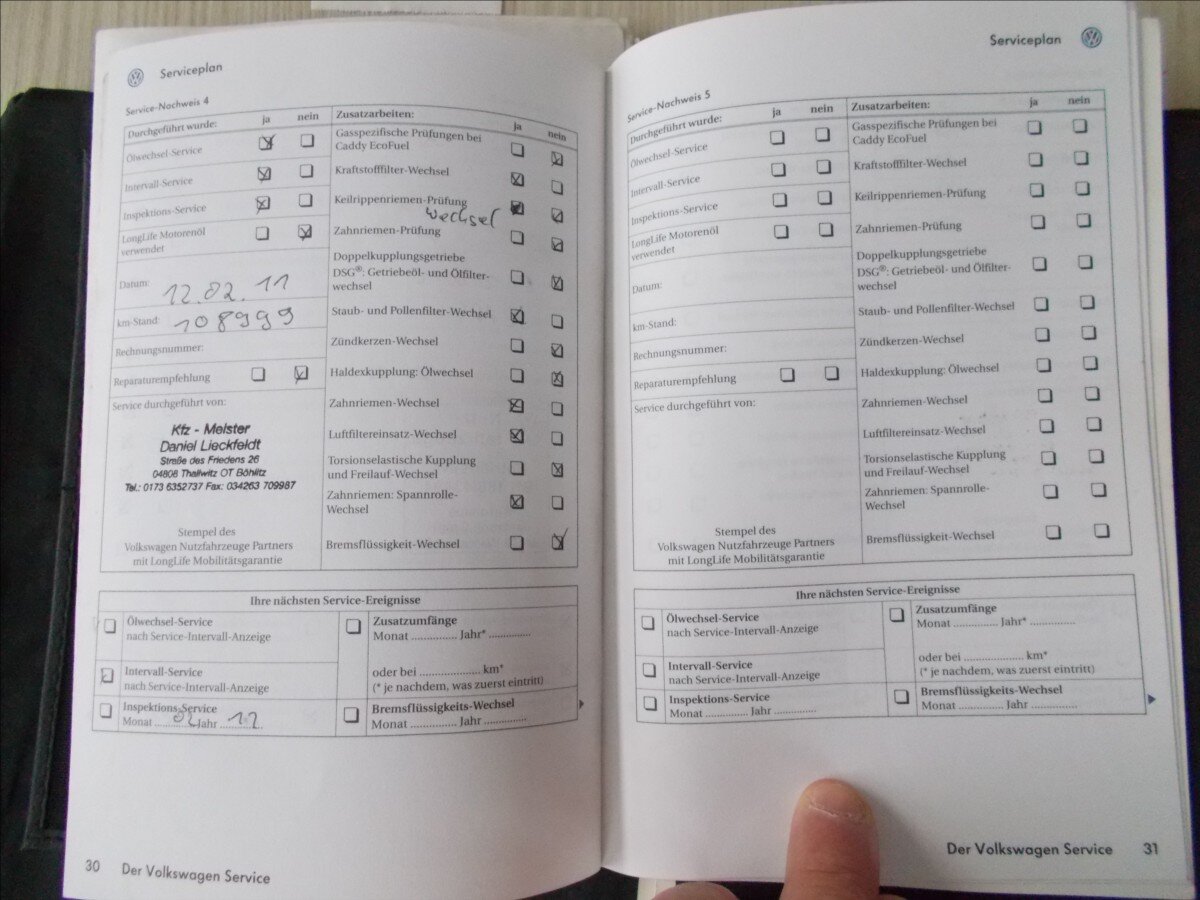 Serviceplan
Service-Nachweis 4
Durchgeführt wurde: ja nein
Ölwechsel-Service
Intervall-Service
Inspektions-Service
LongLife Motorenöl
verwendet
Datum: 12.02.11
km-Stand: 108999
Rechnungsnummer:
Reparaturempfehlung
Service durchgeführt von:
Kfz - Meister
Daniel Lieckfeldt
Straße des Friedens 26
04808 Thallwitz OT Böhlitz
Tel.: 0173 6352737 Fax: 034263 709987
Stempel des
Volkswagen Nutzfahrzeuge Partners
mit LongLife Mobilitätsgarantie
Zusatzarbeiten: ja nein
Gasspezifische Prüfungen bei
Caddy EcoFuel
Kraftstofffilter-Wechsel
Keilrippenriemen-Prüfung
Wechsel
Zahnriemen-Prüfung
Doppelkupplungsgetriebe
DSG®: Getriebeöl- und Ölfilter-
wechsel
Staub- und Pollenfilter-Wechsel
Zündkerzen-Wechsel
Haldexkupplung: Ölwechsel
Zahnriemen-Wechsel
Luftfiltereinsatz-Wechsel
Torsionselastische Kupplung
und Freilauf-Wechsel
Zahnriemen: Spannrolle-
Wechsel
Bremsflüssigkeit-Wechsel
Ihre nächsten Service-Ereignisse
Ölwechsel-Service
nach Service-Intervall-Anzeige
Intervall-Service
nach Service-Intervall-Anzeige
Inspektions-Service
Monat 02 Jahr 12
Zusatzumfänge
Monat ............... Jahr* ..............
oder bei ..................... km*
(* je nachdem, was zuerst eintritt)
Bremsflüssigkeits-Wechsel
Monat ............... Jahr ..............
30 Der Volkswagen Service
Serviceplan
Service-Nachweis 5
Durchgeführt wurde: ja nein
Ölwechsel-Service
Intervall-Service
Inspektions-Service
LongLife Motorenöl
verwendet
Datum:
km-Stand:
Rechnungsnummer:
Reparaturempfehlung
Service durchgeführt von:
Stempel des
Volkswagen Nutzfahrzeuge Partners
mit LongLife Mobilitätsgarantie
Zusatzarbeiten: ja nein
Gasspezifische Prüfungen bei
Caddy EcoFuel
Kraftstofffilter-Wechsel
Keilrippenriemen-Prüfung
Zahnriemen-Prüfung
Doppelkupplungsgetriebe
DSG®: Getriebeöl- und Ölfilter-
wechsel
Staub- und Pollenfilter-Wechsel
Zündkerzen-Wechsel
Haldexkupplung: Ölwechsel
Zahnriemen-Wechsel
Luftfiltereinsatz-Wechsel
Torsionselastische Kupplung
und Freilauf-Wechsel
Zahnriemen: Spannrolle-
Wechsel
Bremsflüssigkeit-Wechsel
Ihre nächsten Service-Ereignisse
Ölwechsel-Service
nach Service-Intervall-Anzeige
Intervall-Service
nach Service-Intervall-Anzeige
Inspektions-Service
Monat .............. Jahr ..............
Zusatzumfänge
Monat ............... Jahr* ...............
oder bei .................... km*
(* je nachdem, was zuerst eintritt)
Bremsflüssigkeits-Wechsel
Monat ............... Jahr ..............
Der Volkswagen Service 31